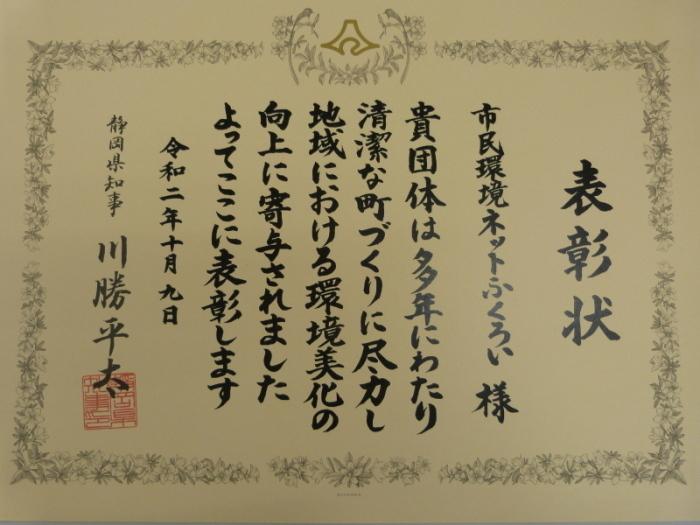 表彰状
市民環境ネットふくろい 様
貴団体は多年にわたり
清潔な町づくりに尽力し
地域における環境美化の
向上に寄与されました
よってここに表彰します
令和二年十月九日
静岡県知事 川勝平太